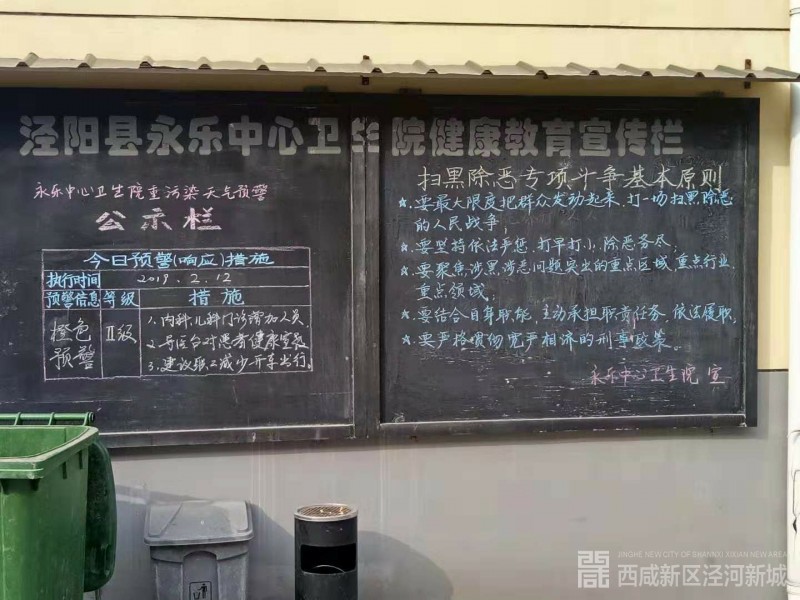 泾阳县永乐中心卫生院健康教育宣传栏
永乐中心卫生院重污染天气预警
公示栏
今日预警(响应)措施
执行时间 2019.2.12
预警信息 等级 措施
橙色预警 Ⅱ级
1.内科,儿科门诊增加人员
2.导医台对患者健康宣教
3.建议职工减少开车出行。
扫黑除恶专项斗争基本原则
★要最大限度把群众发动起来,打一场扫黑除恶
的人民战争;
★要坚持依法严惩、打早打小、除恶务尽;
★要聚焦涉黑涉恶问题突出的重点区域、重点行业、
重点领域;
★要结合自身职能,主动承担职责任务,依法履职,
★要严格贯彻宽严相济的刑事政策。
永乐中心卫生院 宣
JINGHE NEW CITY OF SHAANXI XIXIAN NEW AREA
西咸新区泾河新城